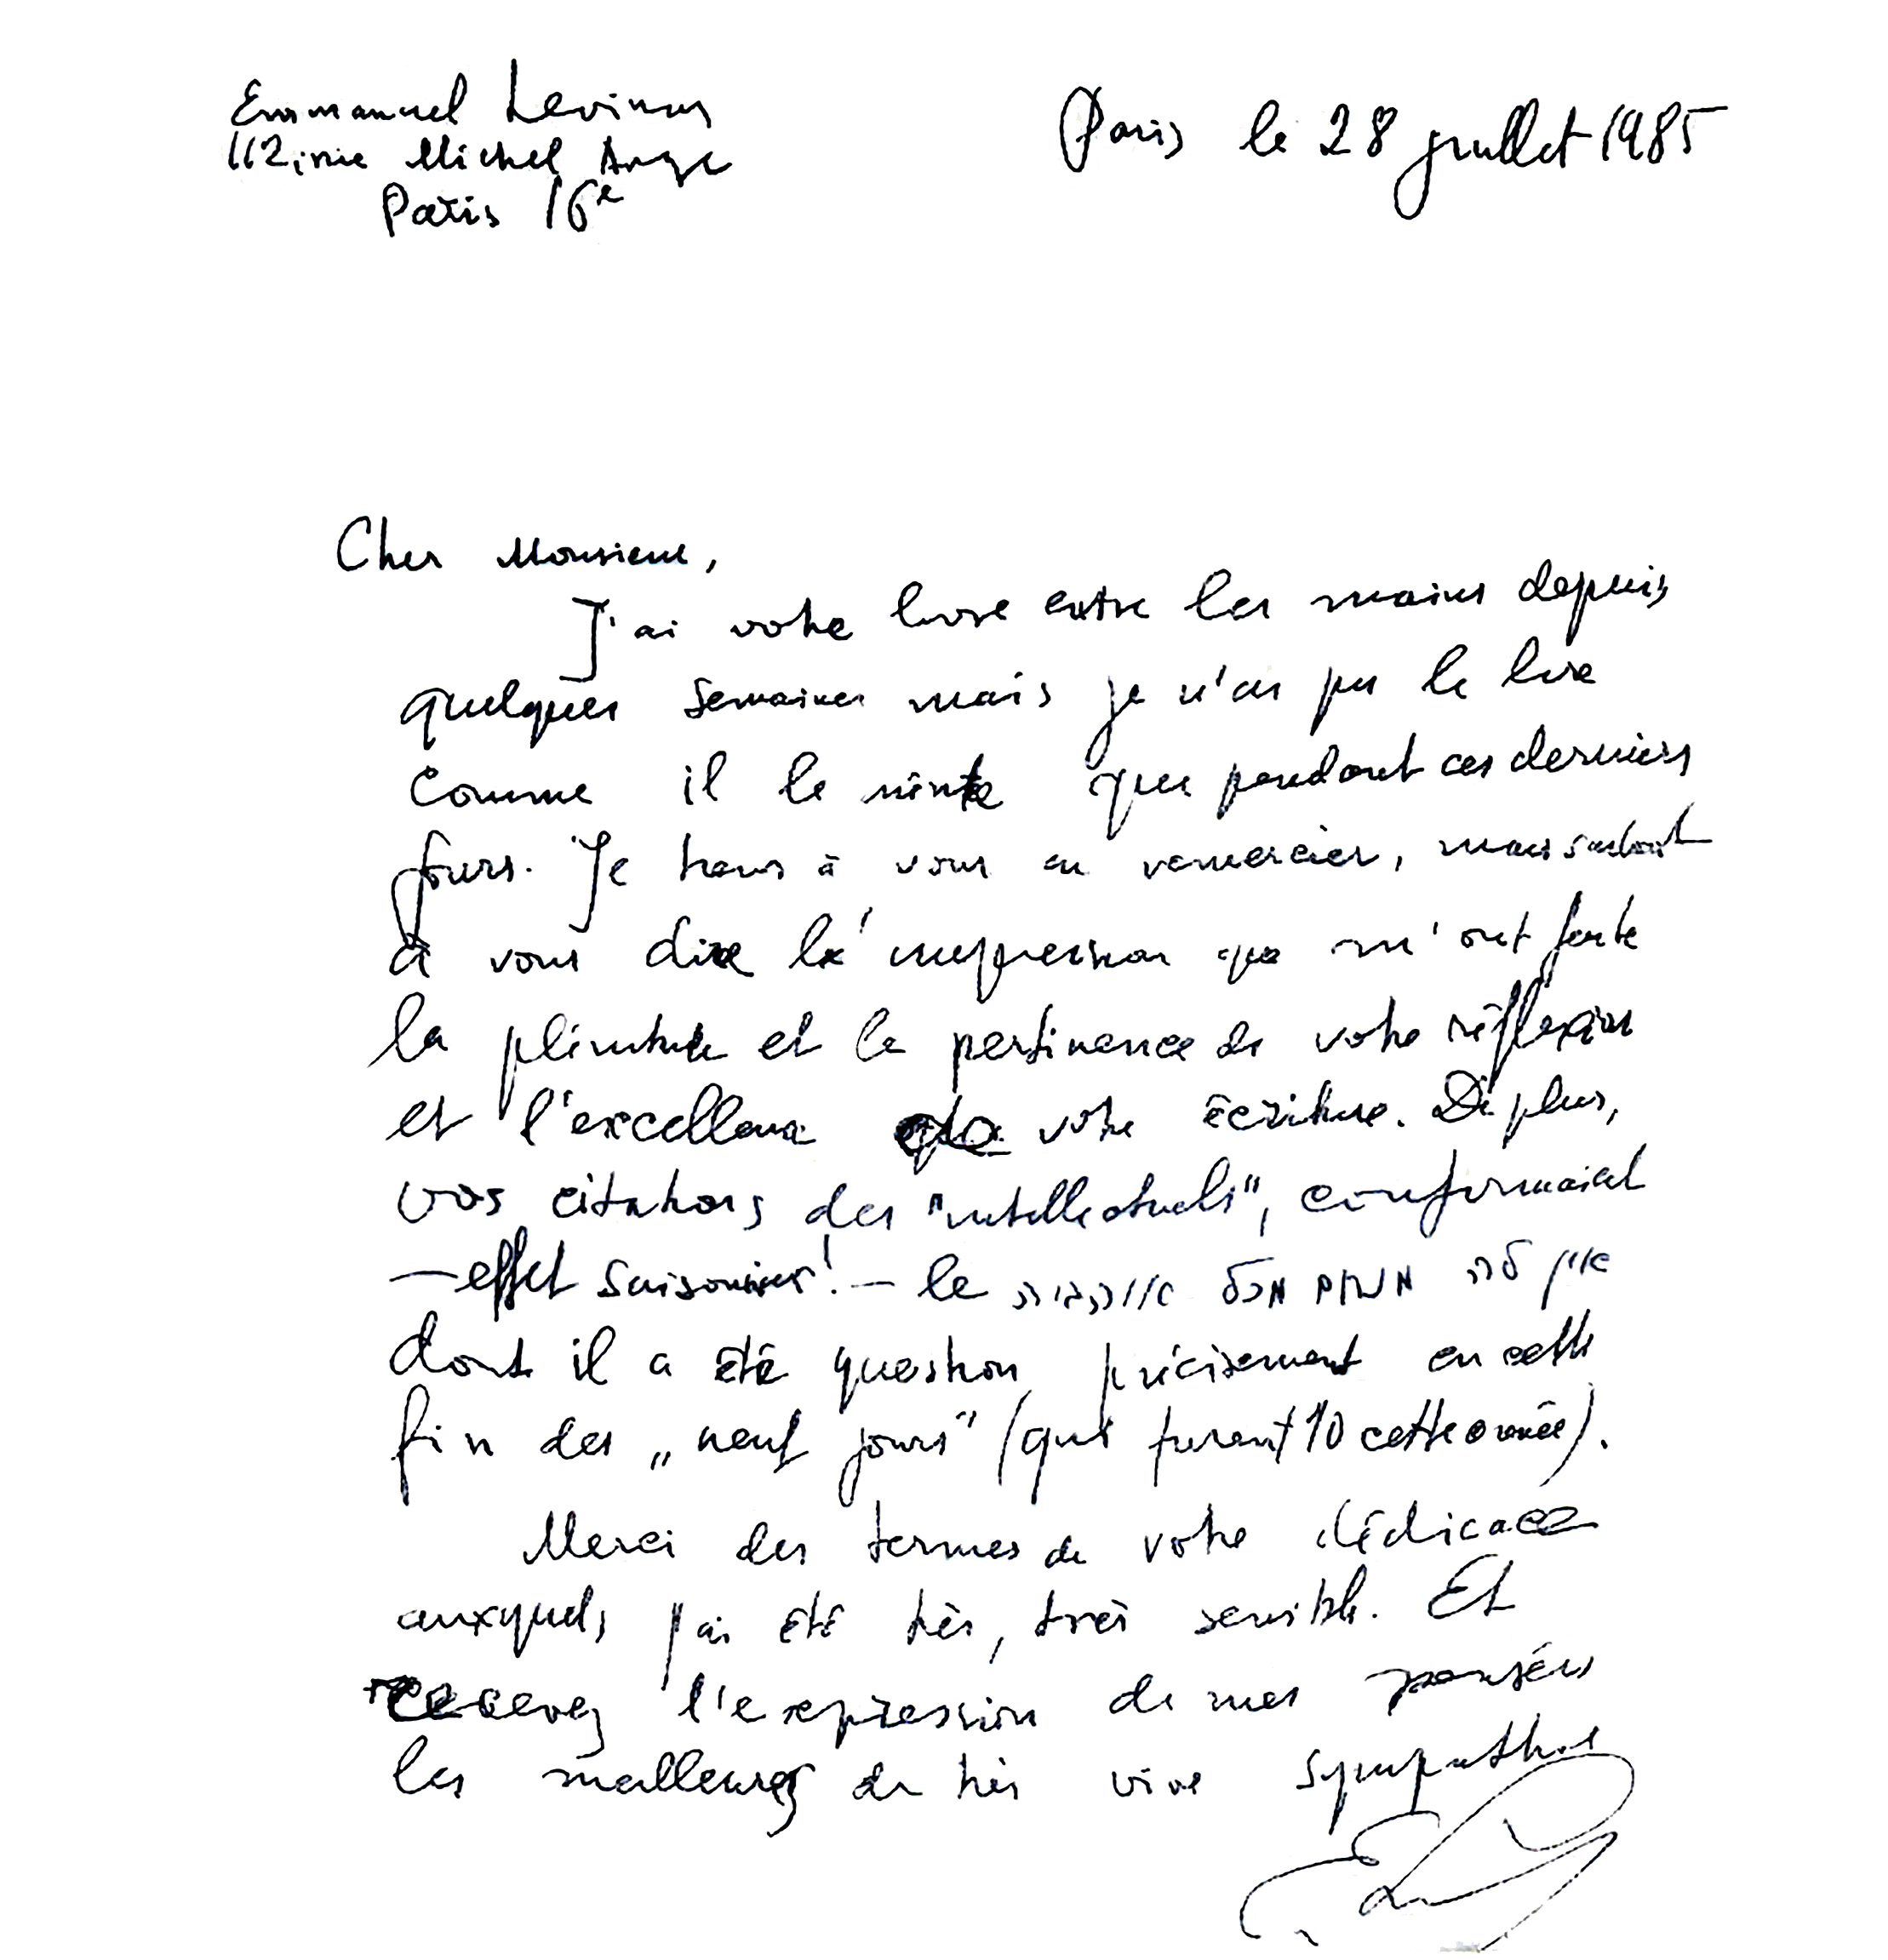 Emmanuel Levinas
112, rue Michel Ange
Paris 16e
Paris le 28 juillet 1985
Cher Monsieur,
J'ai votre livre entre les mains depuis
quelques semaines mais je n'ai pu le lire
comme il le mérite que pendant ces derniers
jours. Je tiens à vous en remercier, mais surtout
à vous dire l'impression que m'ont faite
la plénitude et la pertinence de votre réflexion
et l'excellence de votre écriture. De plus,
vos citations des "intellectuels", confirmaient
— effet saisonnier! — le
dont il a été question précisément en cette
fin des „neuf jours" (qui furent 10 cette année).
Merci des termes de votre dédicace
auxquels j'ai été très, très sensible. Et
recevez l'expression de mes pensées
les meilleures de très vive sympathie